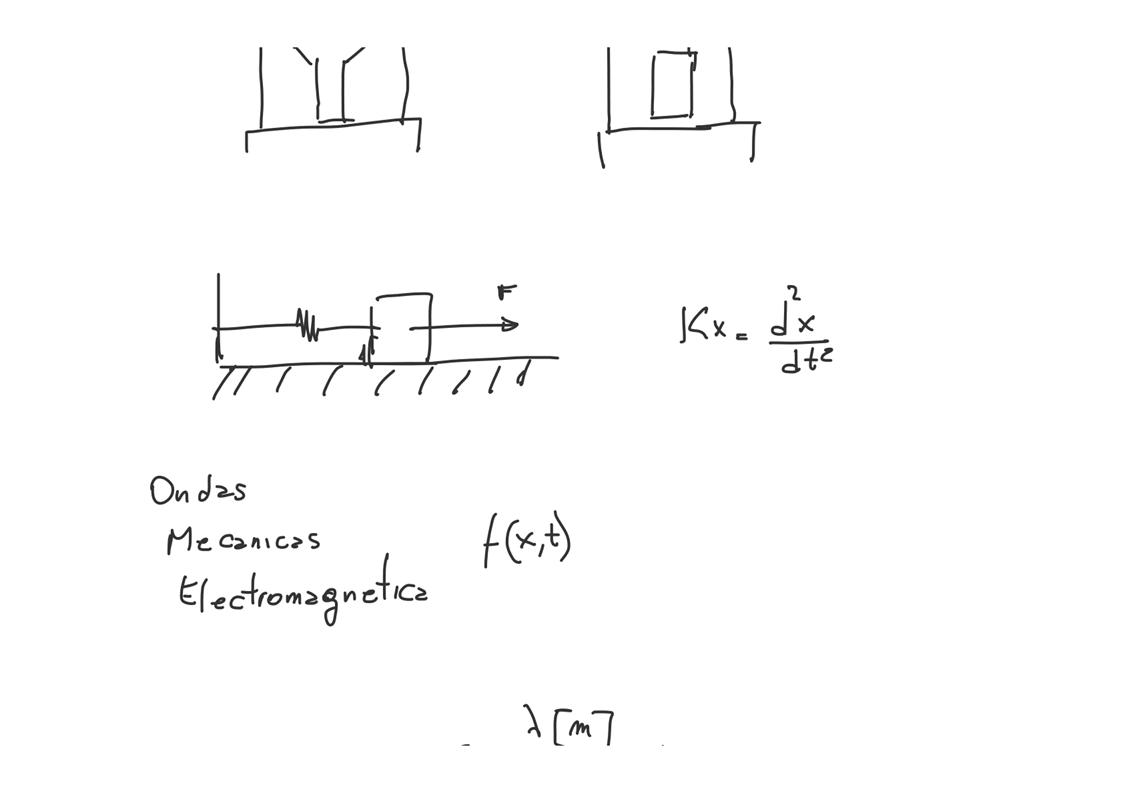 F
Kx = d²x/dt²
Ondas
Mecanicas
f(x,t)
Electromagnetica
λ [m]